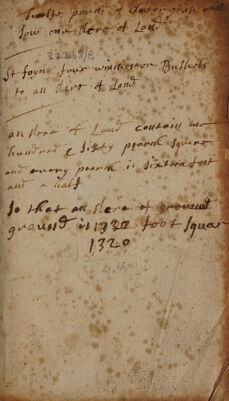 Twelve pound of Clover grass will
Sow one Acre of Land
32268/8
St foyn four winchester Bussels
to an Acre of Land
an Acre of Land contain one
hundred & Sixty pearch Square
and every pearch is Sixteen foot
and a half
So that an Acre of ground
ground is 1320 foot Squar
1320